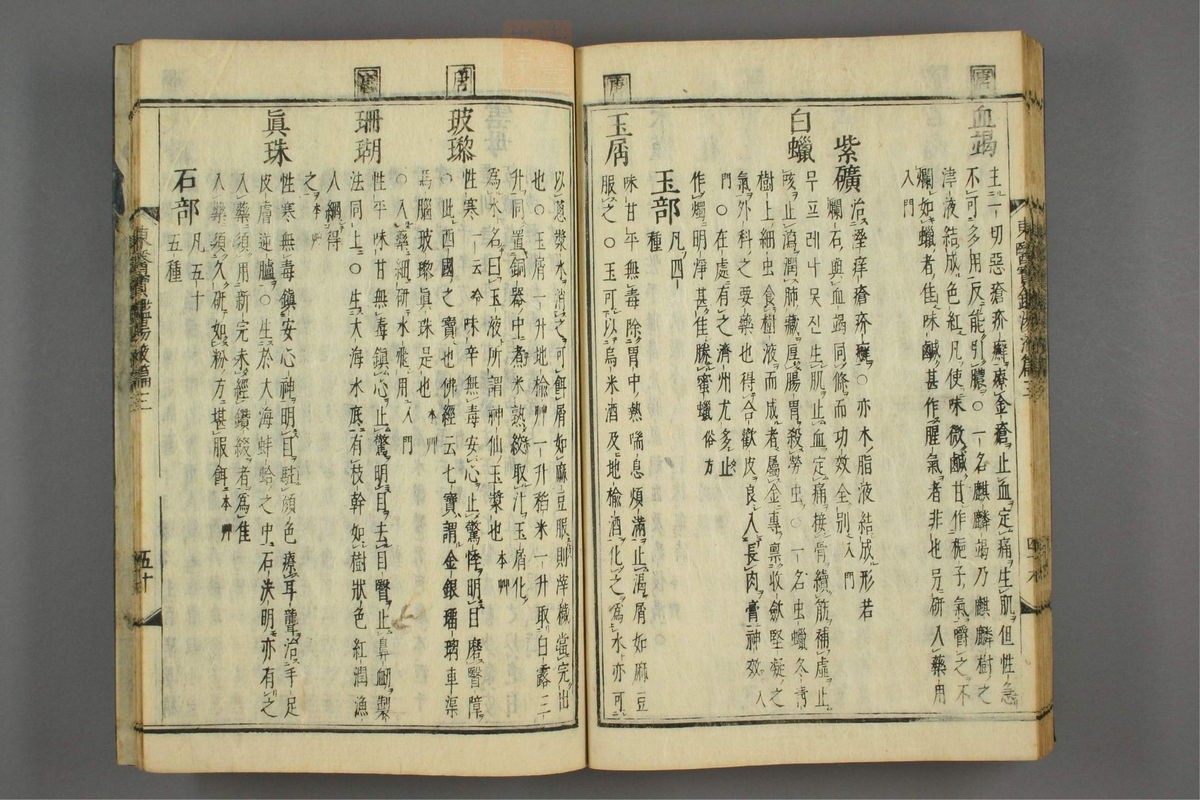 唐
血竭
主一切惡瘡疥癬療金瘡止血定痛生肌但性急
不可多用反能引膿○一名麒麟竭乃麒麟樹之
津液結成色紅凡使味微鹹甘作梔子氣嚼之不
爛如蠟者佳味鹹甚作腥氣者非也另研入藥用
入門
紫礦
治溼痒瘡疥癬○亦木脂液結成形若
爛石與血竭同條而功效全別入門
白蠟
生肌止血定痛接骨續筋補虛止
咳止瀉潤肺臟厚腸胃殺勞虫○一名虫蠟冬青
樹上細虫食樹液而成者屬金專稟收斂堅凝之
氣外科之要藥也得合歡皮良入長肉膏神效入
門○在處有之濟州尤多止
作燭明淨甚佳勝蜜蠟俗方
玉部凡四
種
唐
玉屑
味甘平無毒除胃中熱喘息煩滿止渴屑如麻豆
服之○玉可以烏米酒及地楡酒化之爲水亦可
以葱漿水消之可餌屑如麻豆服則滓穢當完出
也○玉屑一升地楡艸一升稻米一升取白露三
升同置銅器中煮米熟絞取汁玉屑化
爲水名曰玉液所謂神仙玉漿也本艸
唐
玻瓈
性寒一云冷味辛無毒安心止驚悸明目磨瞖障
○此西國之寶也佛經云七寶謂金銀瑠璃車渠
馬腦玻瓈眞珠是也本艸
○入藥細硏水飛用入門
唐
珊瑚
性平味甘無毒鎭心止驚明目去目瞖止鼻衄製
法同上○生大海水底有枝幹如樹狀色紅潤漁
人綱得
之本艸
眞珠
性寒無毒鎭安心神明目駐顏色療耳聾治手足
皮膚逆臚○生於大海蚌蛤之中石決明亦有之
入藥須用新完未經鑽綴者爲佳
入藥須久硏如粉方堪服餌本艸
石部凡五十
五種
東醫寶鑑湯液篇三
五十